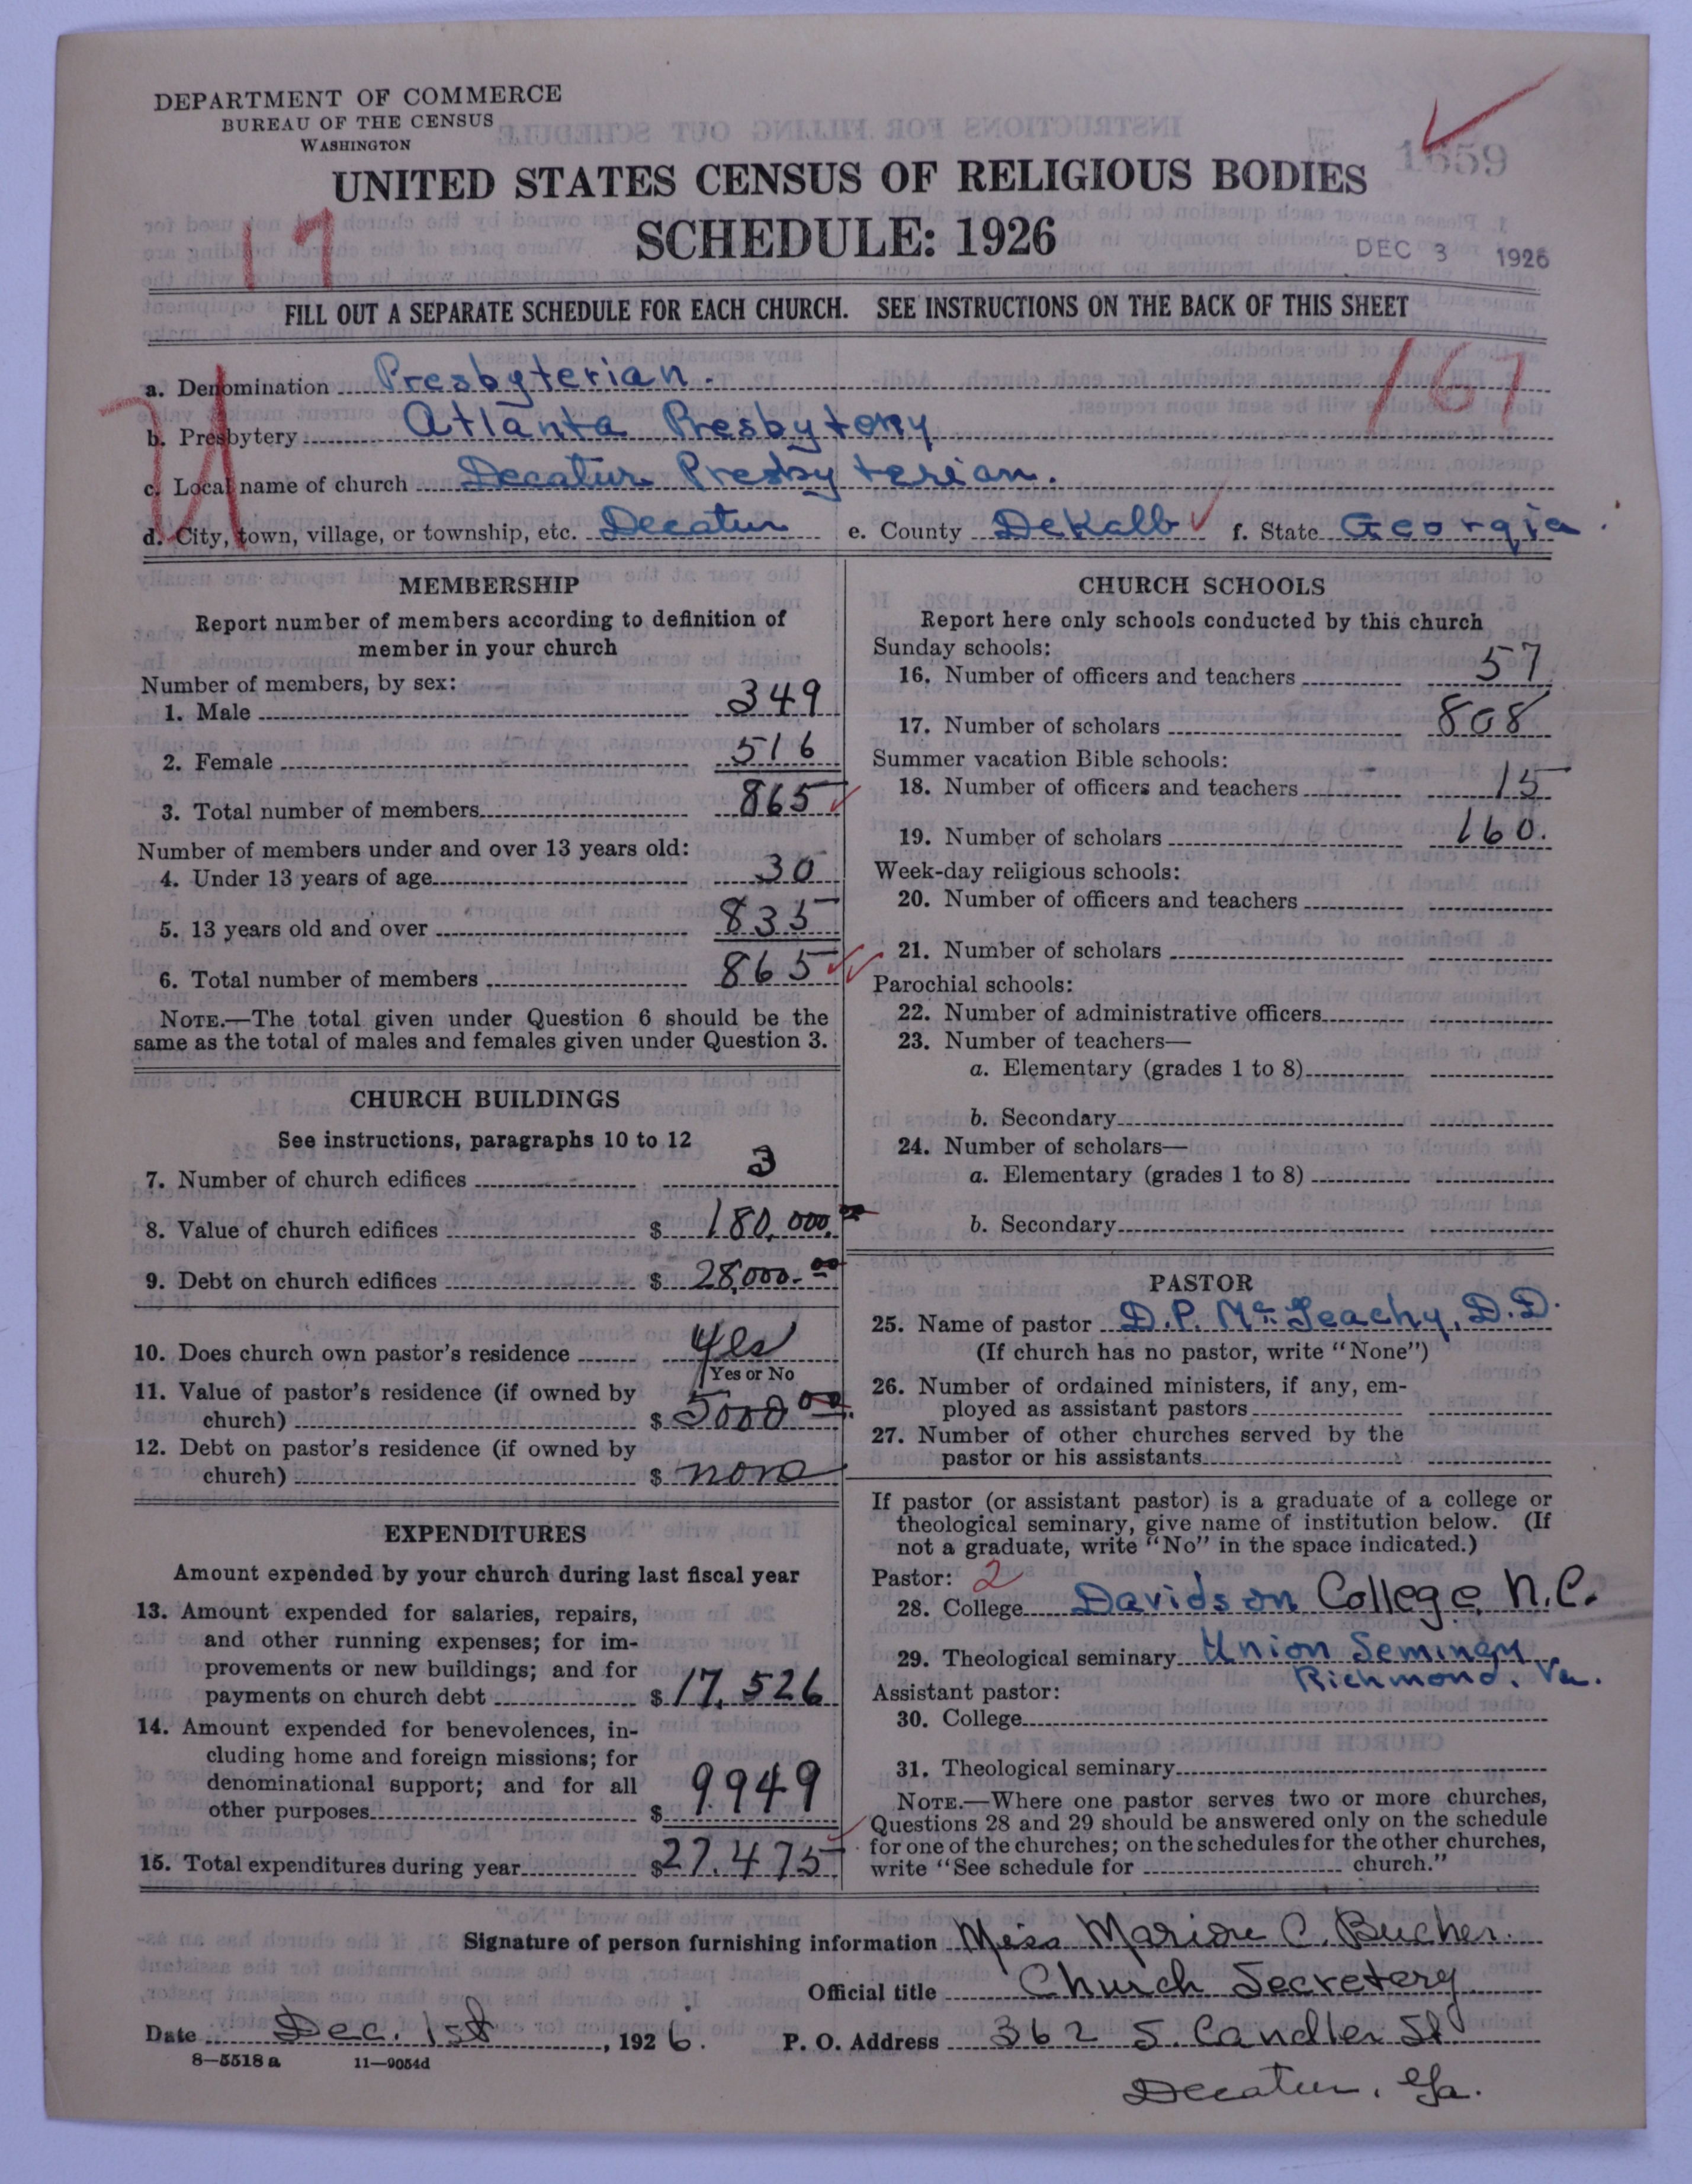 DEPARTMENT OF COMMERCE
BUREAU OF THE CENSUS
WASHINGTON
1659
UNITED STATES CENSUS OF RELIGIOUS BODIES
SCHEDULE: 1926
17
DEC 3 1926
FILL OUT A SEPARATE SCHEDULE FOR EACH CHURCH. SEE INSTRUCTIONS ON THE BACK OF THIS SHEET
a. Denomination Presbyterian.
161
b. Presbytery Atlanta Presbytery
c. Local name of church Decatur Presbyterian.
d. City, town, village, or township, etc. Decatur e. County DeKalb f. State Georgia.
MEMBERSHIP
Report number of members according to definition of
member in your church
Number of members, by sex:
1. Male 349
2. Female 516
3. Total number of members 865
Number of members under and over 13 years old:
4. Under 13 years of age 30
5. 13 years old and over 835
6. Total number of members 865
NOTE.—The total given under Question 6 should be the
same as the total of males and females given under Question 3.
CHURCH BUILDINGS
See instructions, paragraphs 10 to 12
7. Number of church edifices 3
8. Value of church edifices $ 180,000.00
9. Debt on church edifices $ 28,000.00
10. Does church own pastor's residence yes
Yes or No
11. Value of pastor's residence (if owned by
church) $ 5000 00
12. Debt on pastor's residence (if owned by
church) $ none
EXPENDITURES
Amount expended by your church during last fiscal year
13. Amount expended for salaries, repairs,
and other running expenses; for im-
provements or new buildings; and for
payments on church debt $ 17,526
14. Amount expended for benevolences, in-
cluding home and foreign missions; for
denominational support; and for all
other purposes $ 9949
15. Total expenditures during year $ 27,475
CHURCH SCHOOLS
Report here only schools conducted by this church
Sunday schools:
16. Number of officers and teachers 57
17. Number of scholars 808
Summer vacation Bible schools:
18. Number of officers and teachers 15
19. Number of scholars 160.
Week-day religious schools:
20. Number of officers and teachers
21. Number of scholars
Parochial schools:
22. Number of administrative officers
23. Number of teachers—
a. Elementary (grades 1 to 8)
b. Secondary
24. Number of scholars—
a. Elementary (grades 1 to 8)
b. Secondary
PASTOR
25. Name of pastor D.P. McGeachy, D.D.
(If church has no pastor, write "None")
26. Number of ordained ministers, if any, em-
ployed as assistant pastors
27. Number of other churches served by the
pastor or his assistants
If pastor (or assistant pastor) is a graduate of a college or
theological seminary, give name of institution below. (If
not a graduate, write "No" in the space indicated.)
Pastor: 2
28. College Davidson College, N.C.
29. Theological seminary Union Seminary
Richmond, Va.
Assistant pastor:
30. College
31. Theological seminary
NOTE.—Where one pastor serves two or more churches,
Questions 28 and 29 should be answered only on the schedule
for one of the churches; on the schedules for the other churches,
write "See schedule for church."
Signature of person furnishing information Miss Marion C. Bucher.
Official title Church Secretery
Date Dec. 1st, 1926. P. O. Address 362 S. Candler St
8—5518a 11—9054d
Decatur, Ga.